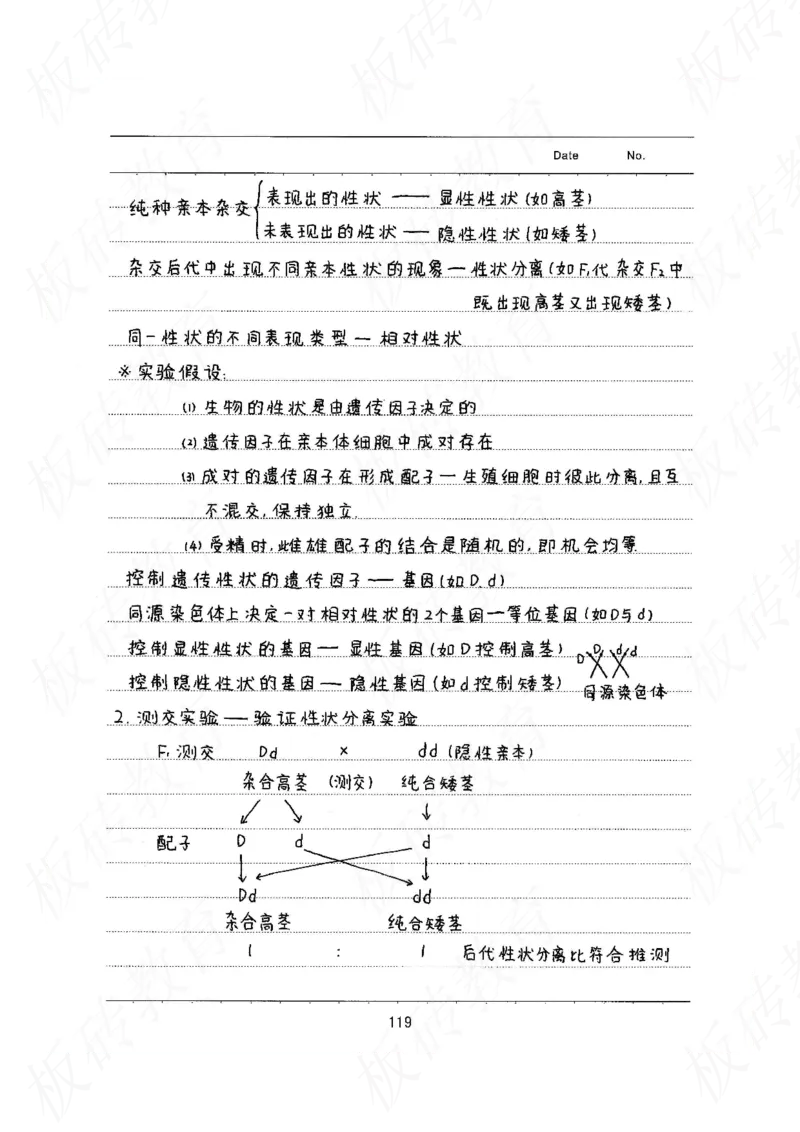 Date No.
纯种亲本杂交 { 表现出的性状 —— 显性性状(如高茎)
未表现出的性状 — 隐性性状(如矮茎)
杂交后代中出现不同亲本性状的现象—性状分离(如F₁代杂交F₂中
既出现高茎又出现矮茎)
同一性状的不同表现类型 — 相对性状
※实验假设:
(1) 生物的性状是由遗传因子决定的
(2) 遗传因子在亲本体细胞中成对存在
(3) 成对的遗传因子在形成配子—生殖细胞时彼此分离,且互
不混交,保持独立.
(4) 受精时,雌雄配子的结合是随机的,即机会均等.
控制遗传性状的遗传因子 — 基因(如D.d)
同源染色体上决定一对相对性状的2个基因—等位基因(如D与d)
控制显性性状的基因 — 显性基因(如D控制高茎)
D D d d
控制隐性性状的基因 — 隐性基因(如d控制矮茎)
同源染色体
2. 测交实验 — 验证性状分离实验
F₁测交 Dd × dd (隐性亲本)
杂合高茎 (测交) 纯合矮茎
配子 D d d
Dd dd
杂合高茎 纯合矮茎
1 : 1 后代性状分离比符合推测
119
板砖教育